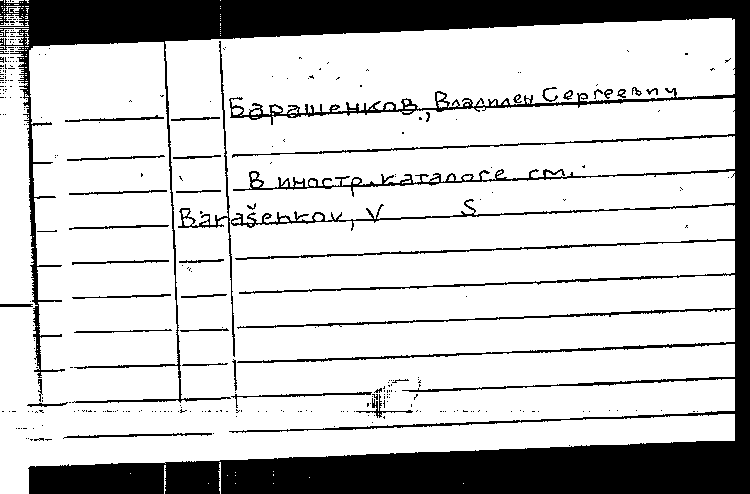 Барашенков, Владилен Сергеевич
В иностр. каталоге см.
Barašenkov, V S